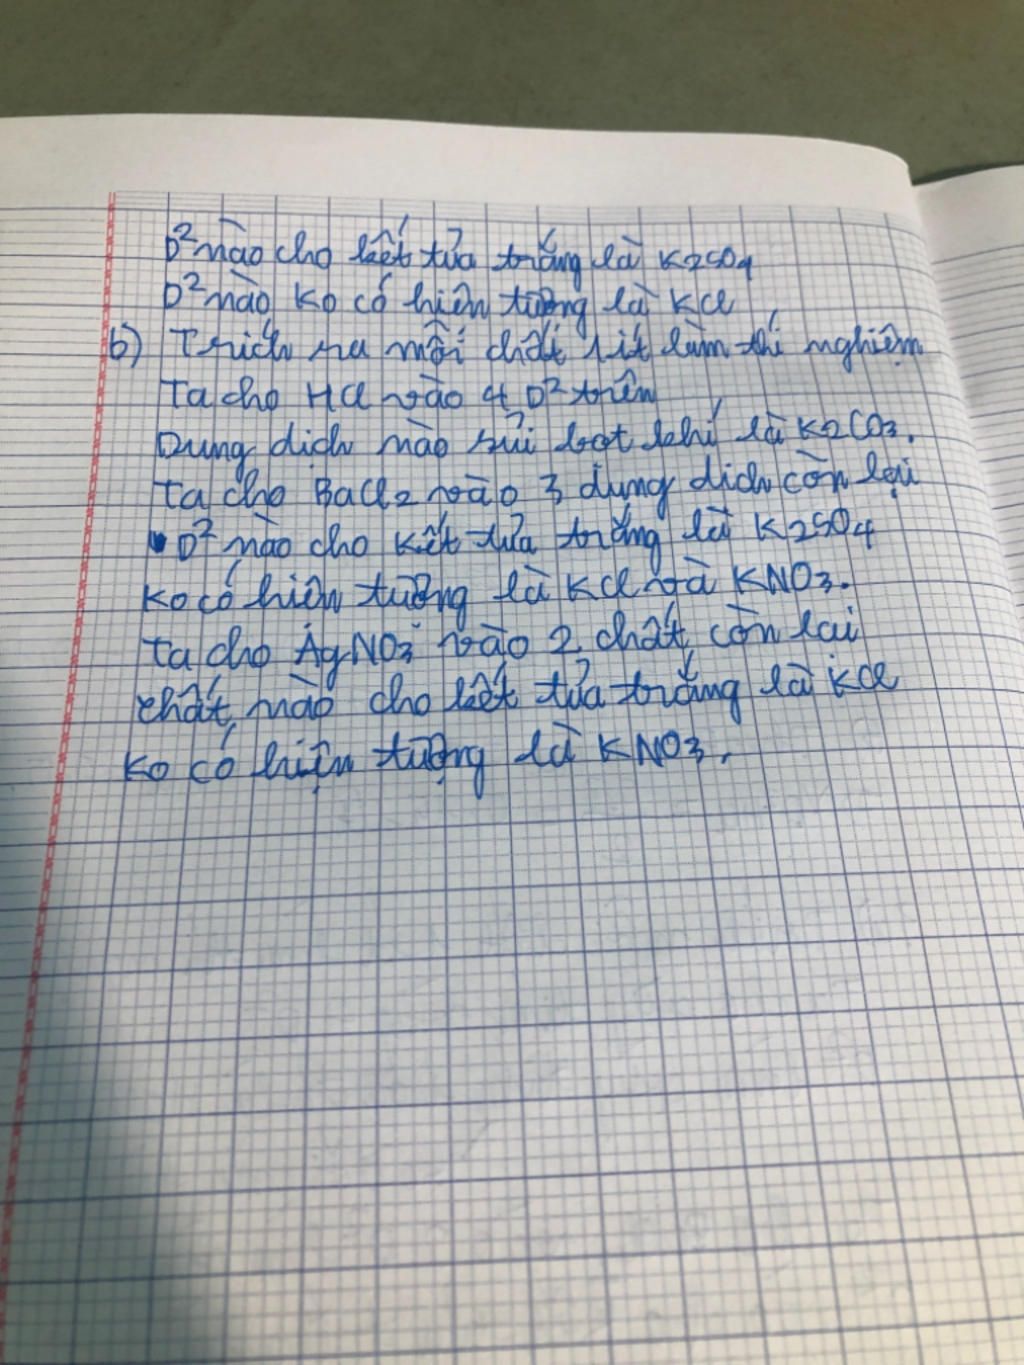 D² nào cho kết tủa trắng là K2SO4
D² nào ko có hiện tượng là KCl
b) Trích ra mỗi chất 1 ít làm thí nghiệm
Ta cho HCl vào 4 D² trên
Dung dịch nào sủi bọt khí là K2CO3.
Ta cho BaCl2 vào 3 dung dịch còn lại
D² nào cho kết tủa trắng là K2SO4
Ko có hiện tượng là KCl và KNO3.
Ta cho AgNO3 vào 2 chất còn lại
chất nào cho kết tủa trắng là KCl
Ko có hiện tượng là KNO3.